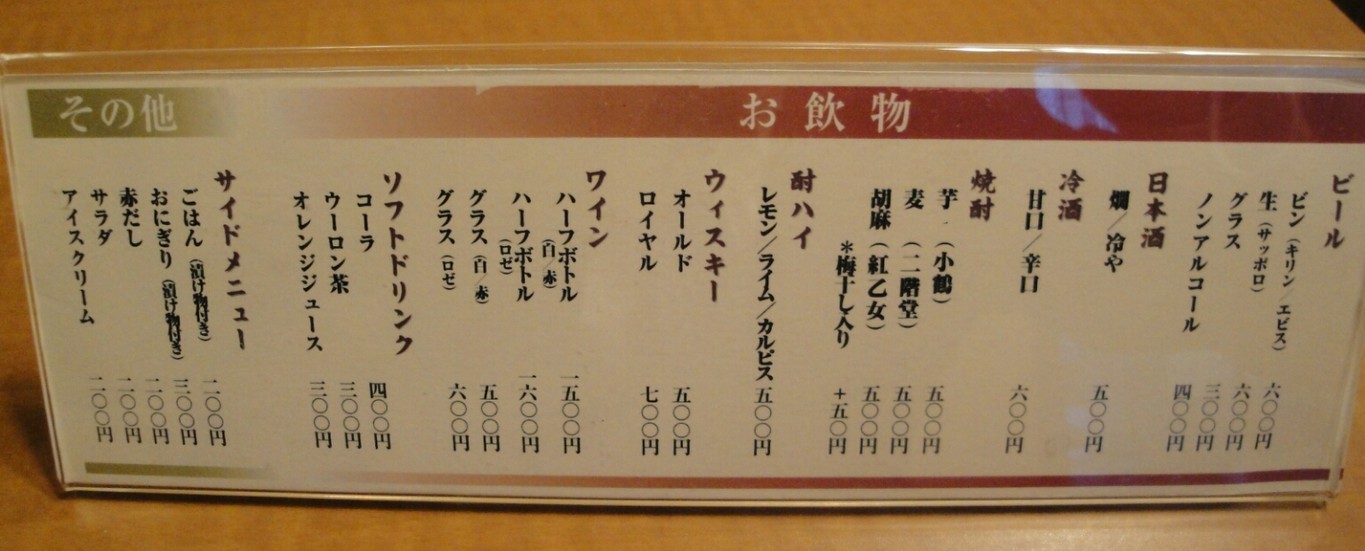 お飲物
ビール
ビン（キリン／エビス） 六〇〇円
生（サッポロ） 六〇〇円
グラス 三〇〇円
ノンアルコール 四〇〇円
日本酒
燗／冷や 五〇〇円
冷酒
甘口／辛口 六〇〇円
焼酎
芋（小鶴） 五〇〇円
麦（二階堂） 五〇〇円
胡麻（紅乙女） 五〇〇円
＊梅干し入り ＋五〇円
酎ハイ
レモン／ライム／カルピス 五〇〇円
ウィスキー
オールド 五〇〇円
ロイヤル 七〇〇円
ワイン
ハーフボトル（白／赤） 一五〇〇円
ハーフボトル（ロゼ） 一六〇〇円
グラス（白／赤） 五〇〇円
グラス（ロゼ） 六〇〇円
ソフトドリンク
コーラ 四〇〇円
ウーロン茶 三〇〇円
オレンジジュース 三〇〇円
その他
サイドメニュー
ごはん（漬け物付き） 二〇〇円
おにぎり（漬け物付き） 三〇〇円
赤だし 二〇〇円
サラダ 二〇〇円
アイスクリーム 二〇〇円